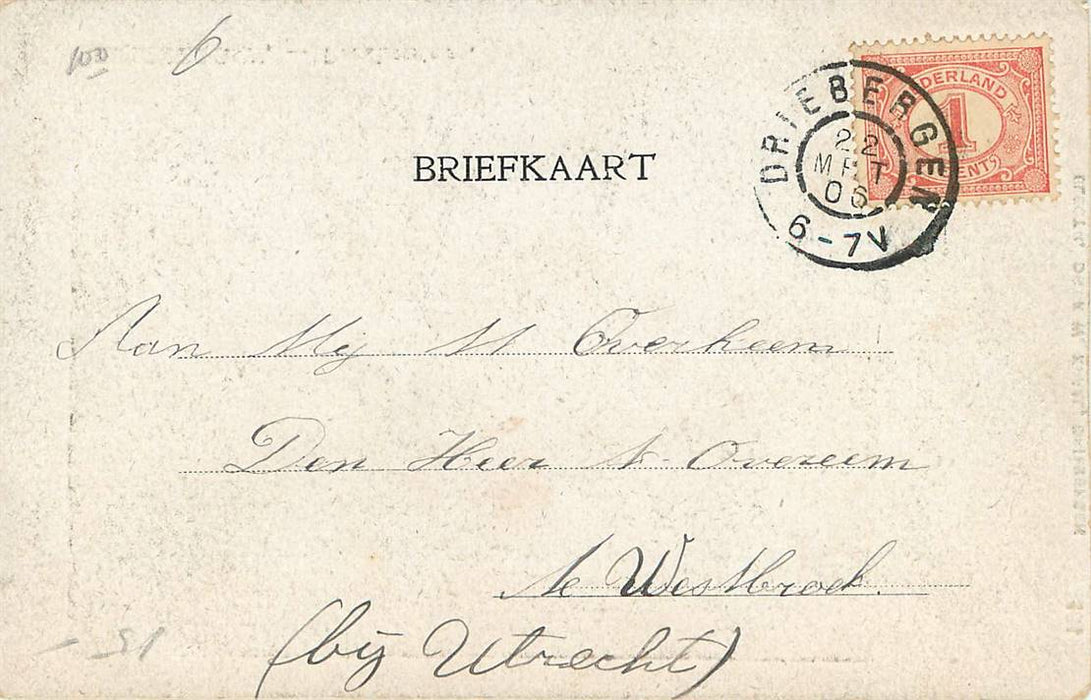 100
6
NEDERLAND
1
CENT
DRIEBERGEN
22
MRT
06
6-7V
BRIEFKAART
Aan Mej M Overheem
Den Heer A. Overeem
te Westbroek.
(bij Utrecht)